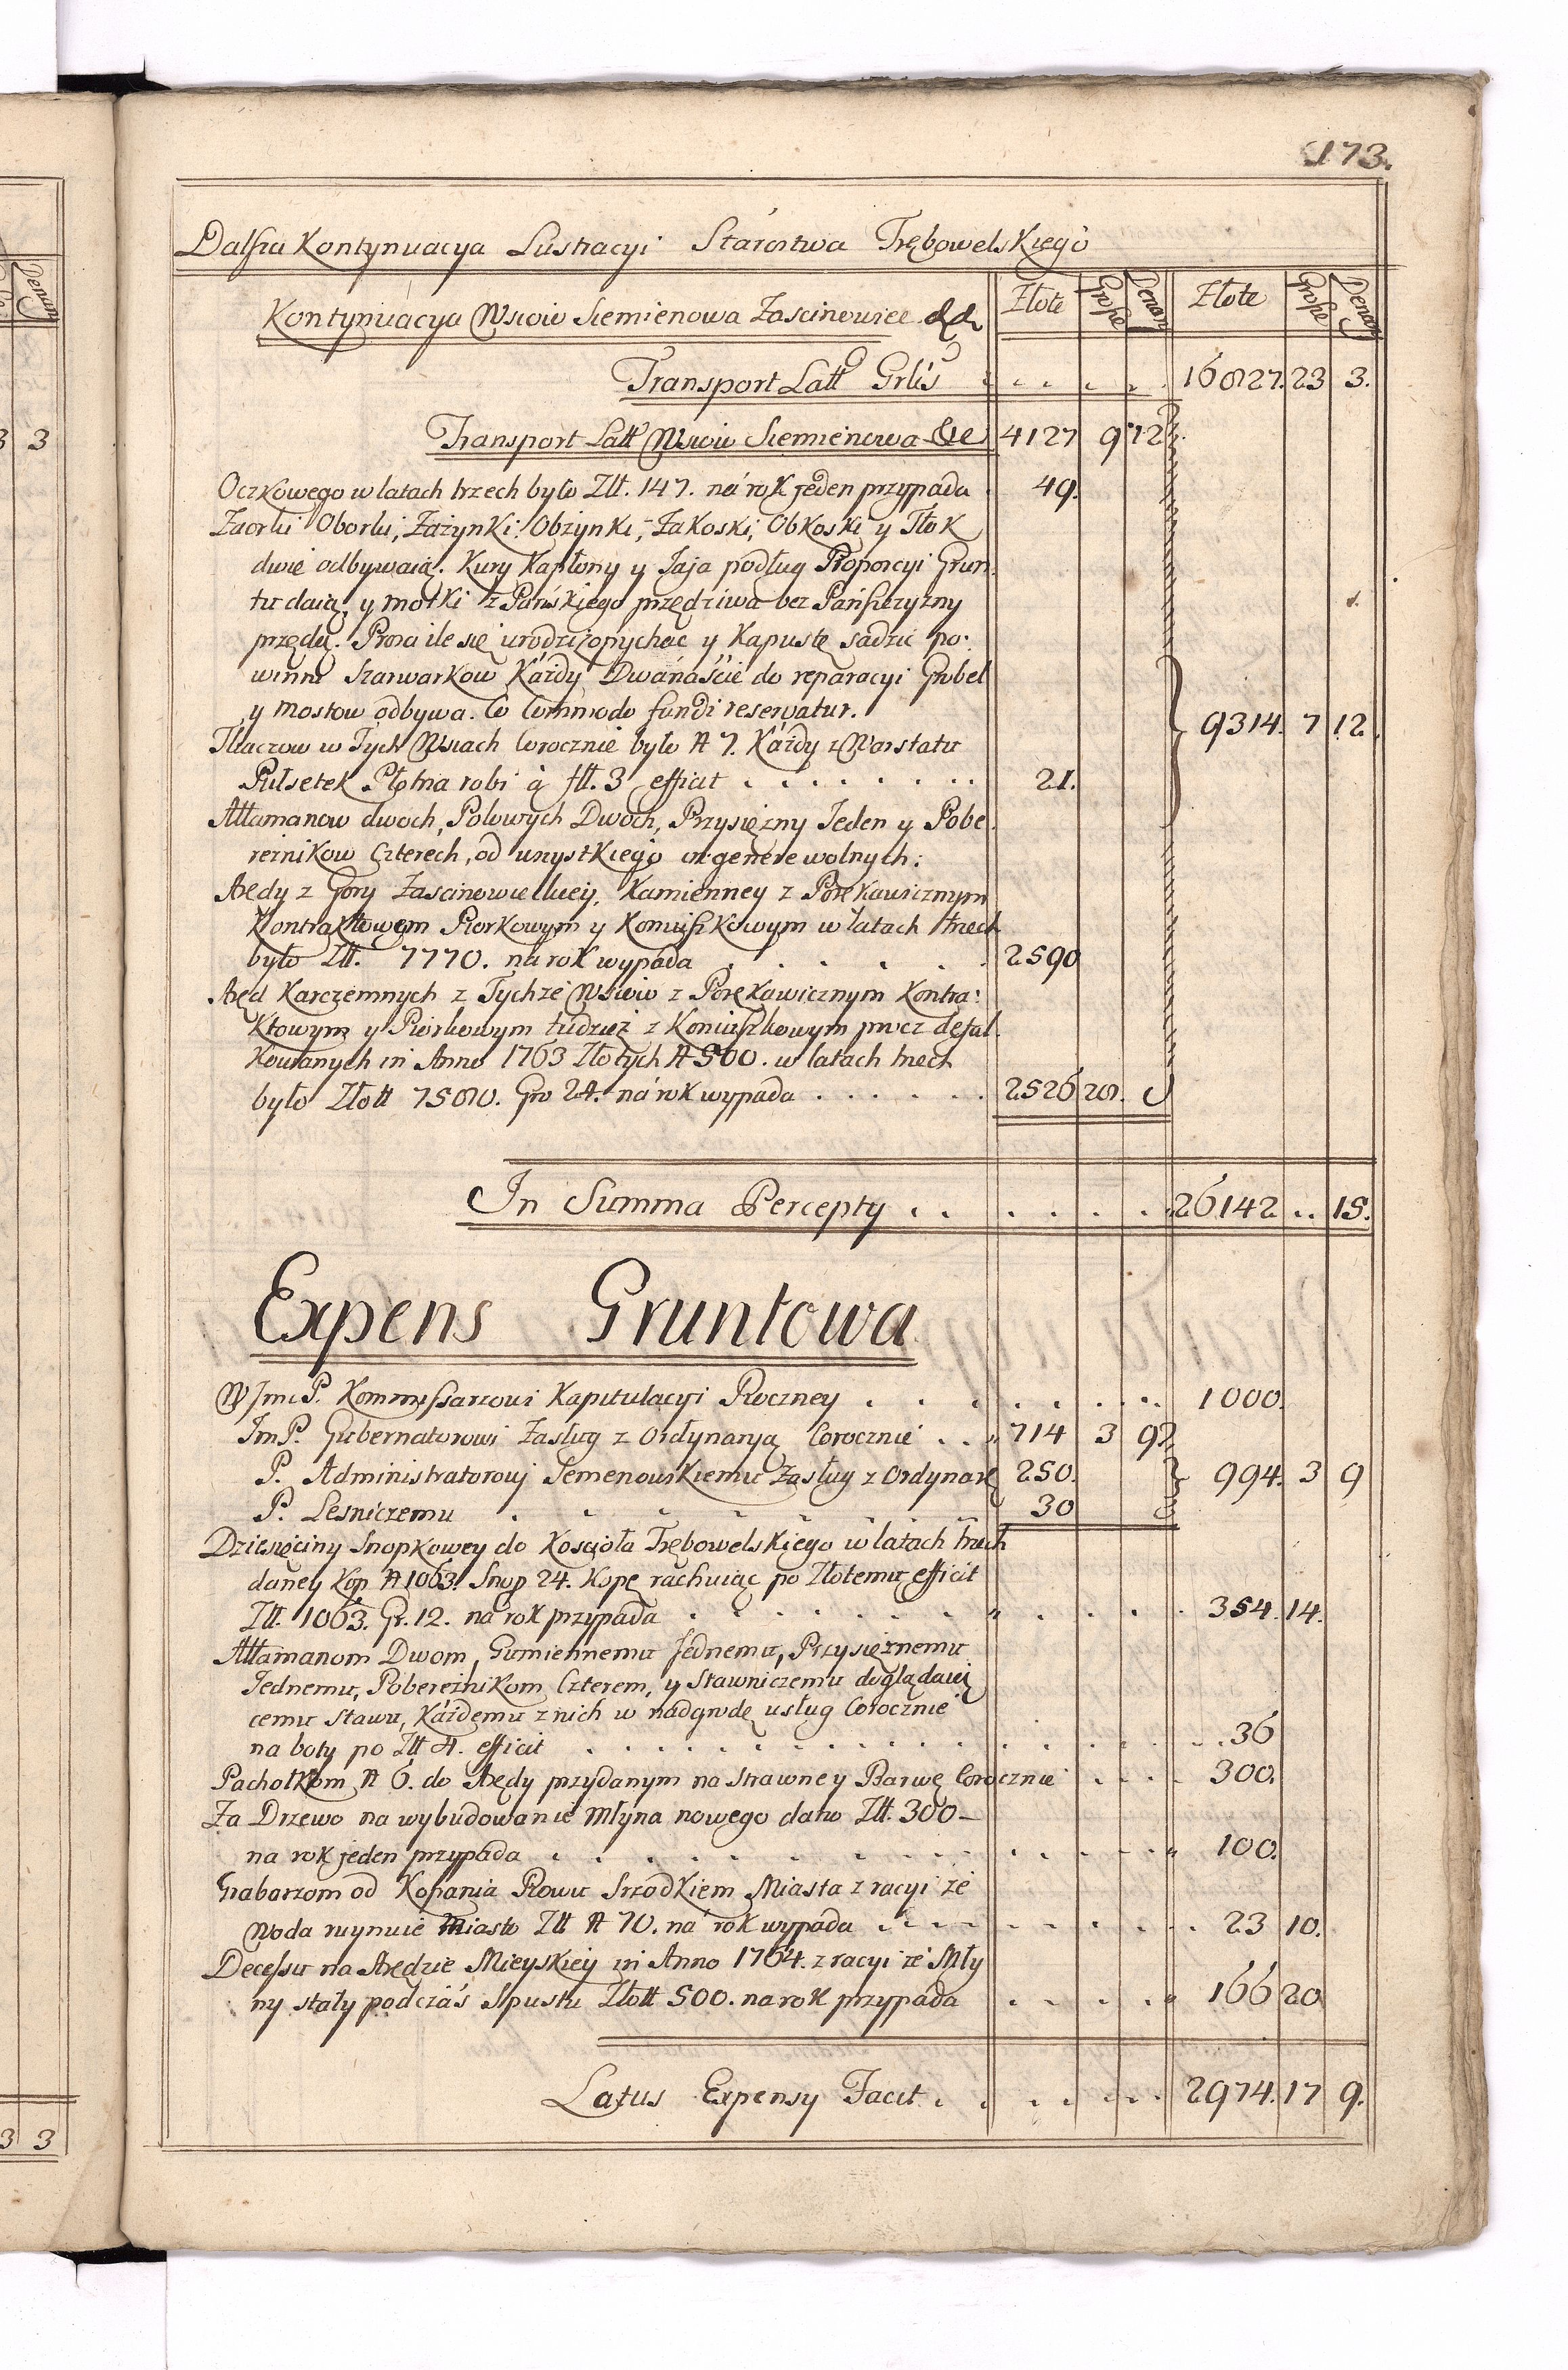 173.
Dalsza Kontynuacya Lustracyi Starostwa Trębowelskiego
Kontynuacya Wsiow Siemienowa Zascinowiec &&
Złote Grosze Denary Złote Grosze Denary
Transport Latt Grlis . . . . 16827. 23 3.
Transport Latt Wsiow Siemienowa &c 4127 9 12
Oczkowego w latach trzech było Złł. 147. na rok jeden przypada 49.
Zaorki Oborki, Zażynki Obżynki, Zakoski, Obkoski y Tłok
dwie odbywaią. Kury Kapłony y Jaja podług Proporcyi Grun
tu daią, y motki z Pańskiego przędziwa bez Pańszczyzny
przędą. Prosa ile się urodzi opychać y Kapustę sadzić po:
winni Szarwarkow Każdy Dwanaście do reparacyi Grobel
y Mostow odbywa. Co Commodo fundi reservatur.
9314. 7 12.
Tkaczow w Tych Wsiach Corocznie było N 7. Każdy z Warstatu
Pułsetek Płotna robi à fll. 3 efficit . . . . . . 21.
Attamanow dwoch, Polowych Dwoch, Przysiężny Jeden y Pobe
reżnikow Czterech, od wszystkiego in genere wolnych:
Arędy z Gory Zascinowieckiey, Kamienney z Porękawicznym
Kontraktowym Piorkowym y Koniuszkowym w latach trzech
było Złł. 7770. na rok wypada . . . . . 2590
Aręd Karczemnych z Tychże Wsiow z Porękawicznym Kontra:
Ktowym y Piorkowym tudzież z Koniuszkowym procz defal
Kowanych in Anno 1763 Złotych N 500. w latach trzech
było Złott 7580. Gro 24. na rok wypada . . . . . . 2526 28.
In Summa Percepty . . . . . . 26142 .. 15.
Expens Gruntowa
W Jmć P. Kommissarzowi Kapitulacyi Roczney . . . . . . . 1000.
Jm P. Gubernatorowi Zasług z Ordynaryą Corocznie . . 714 3 9
P. Administratorowi Semenowskiemu Zasług z Ordynarą 250. 994. 3 9
P. Lesniczemu . . . . . . 30
Dziesięciny Snopkowey do Kościoła Trębowelskiego w latach trzech
daney Kop N 1063. Snop 24. Kopę rachuiąc po Złotemu efficit
Złł. 1063. Gr. 12. na rok przypada . . . . . . . . 354. 14.
Attamanom Dwom, Gumiennemu Jednemu, Przysiężnemu
Jednemu, Pobereżnikom Czterem, y Stawniczemu doglądaią
cemu Stawu, Każdemu z nich w nadgrodę usług Corocznie
na boty po Złł 4. efficit . . . . . . . . . 36
Pachołkom N 6. do Arędy przydanym na Strawne y Barwę Corocznie . . . . 300.
Za Drzewo na wybudowanie Młyna nowego dano Złł. 300 –
na rok jeden przypada . . . . . . . . . 100.
Grabarzom od Kopania Rowu Srzodkiem Miasta z racyi że
Woda rujnuie Miasto Złł N 70. na rok wypada . . . . . . . 23 10.
Decessu na Arędzie Mieyskiey in Anno 1764. z racyi że Mły
ny stały podczas Spustu Złott 500. na rok przypada . . . . 166 20
Latus Expensy Facit . . . . . . 2974. 17 9.
3 3
Denary
3 3